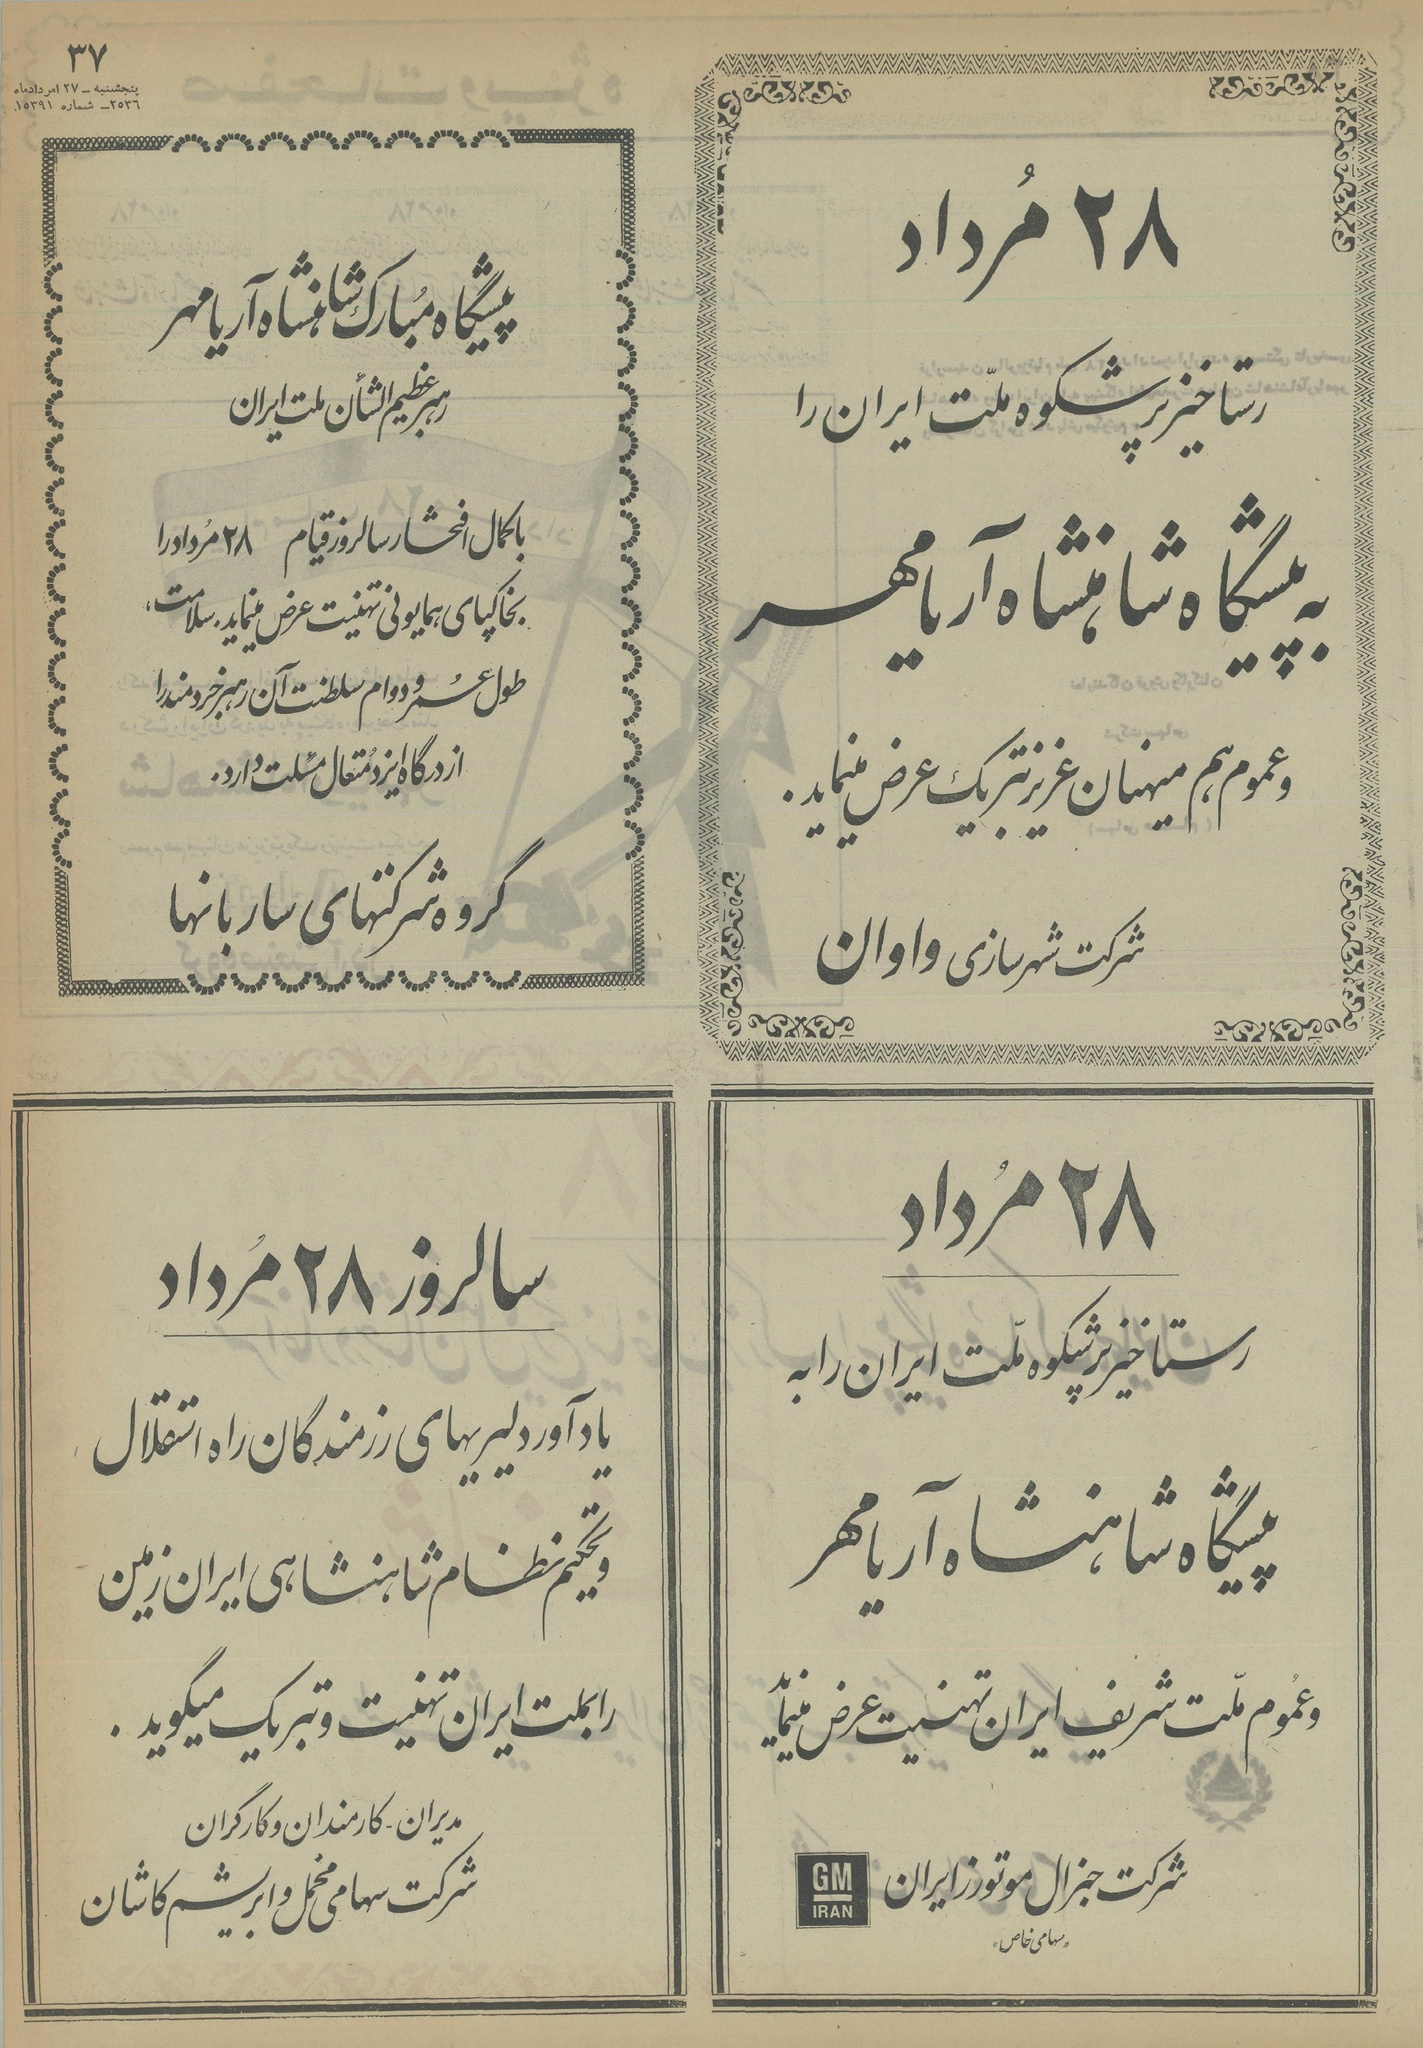 ۳۷
پنجشنبه – ۲۷ امردادماه
۲۵۳۶ – شماره ۱۵۳۹۱
۲۸ مُرداد
رستاخیز پرشکوه ملّت ایران را
به پیشگاه شاهنشاه آریامهر
و عموم هم میهنان عزیز تبریک عرض مینماید.
شرکت شهرسازی واوان
پیشگاه مُبارک شاهنشاه آریامهر
رهبر عظیم الشأن ملت ایران
با کمال افتخار سالروز قیام ۲۸ مُرداد را
بخاکپای همایونی تهنیت عرض مینماید. سلامت،
طول عُمر و دوام سلطنت آن رهبر خردمند را
از درگاه ایزد مُتعال مسئلت دارد.
گروه شرکتهای ساربانها
۲۸ مُرداد
رستاخیز پرشکوه ملّت ایران را به
پیشگاه شاهنشاه آریامهر
و عُموم ملّت شریف ایران تهنیت عرض مینماید
شرکت جنرال موتورز ایران
GM
IRAN
«سهامی خاص»
سالروز ۲۸ مُرداد
یادآور دلیریهای رزمندگان راه استقلال
و تحکیم نظام شاهنشاهی ایران زمین
را بملت ایران تهنیت و تبریک میگوید.
مدیران - کارمندان و کارگران
شرکت سهامی مخمل و ابریشم کاشان